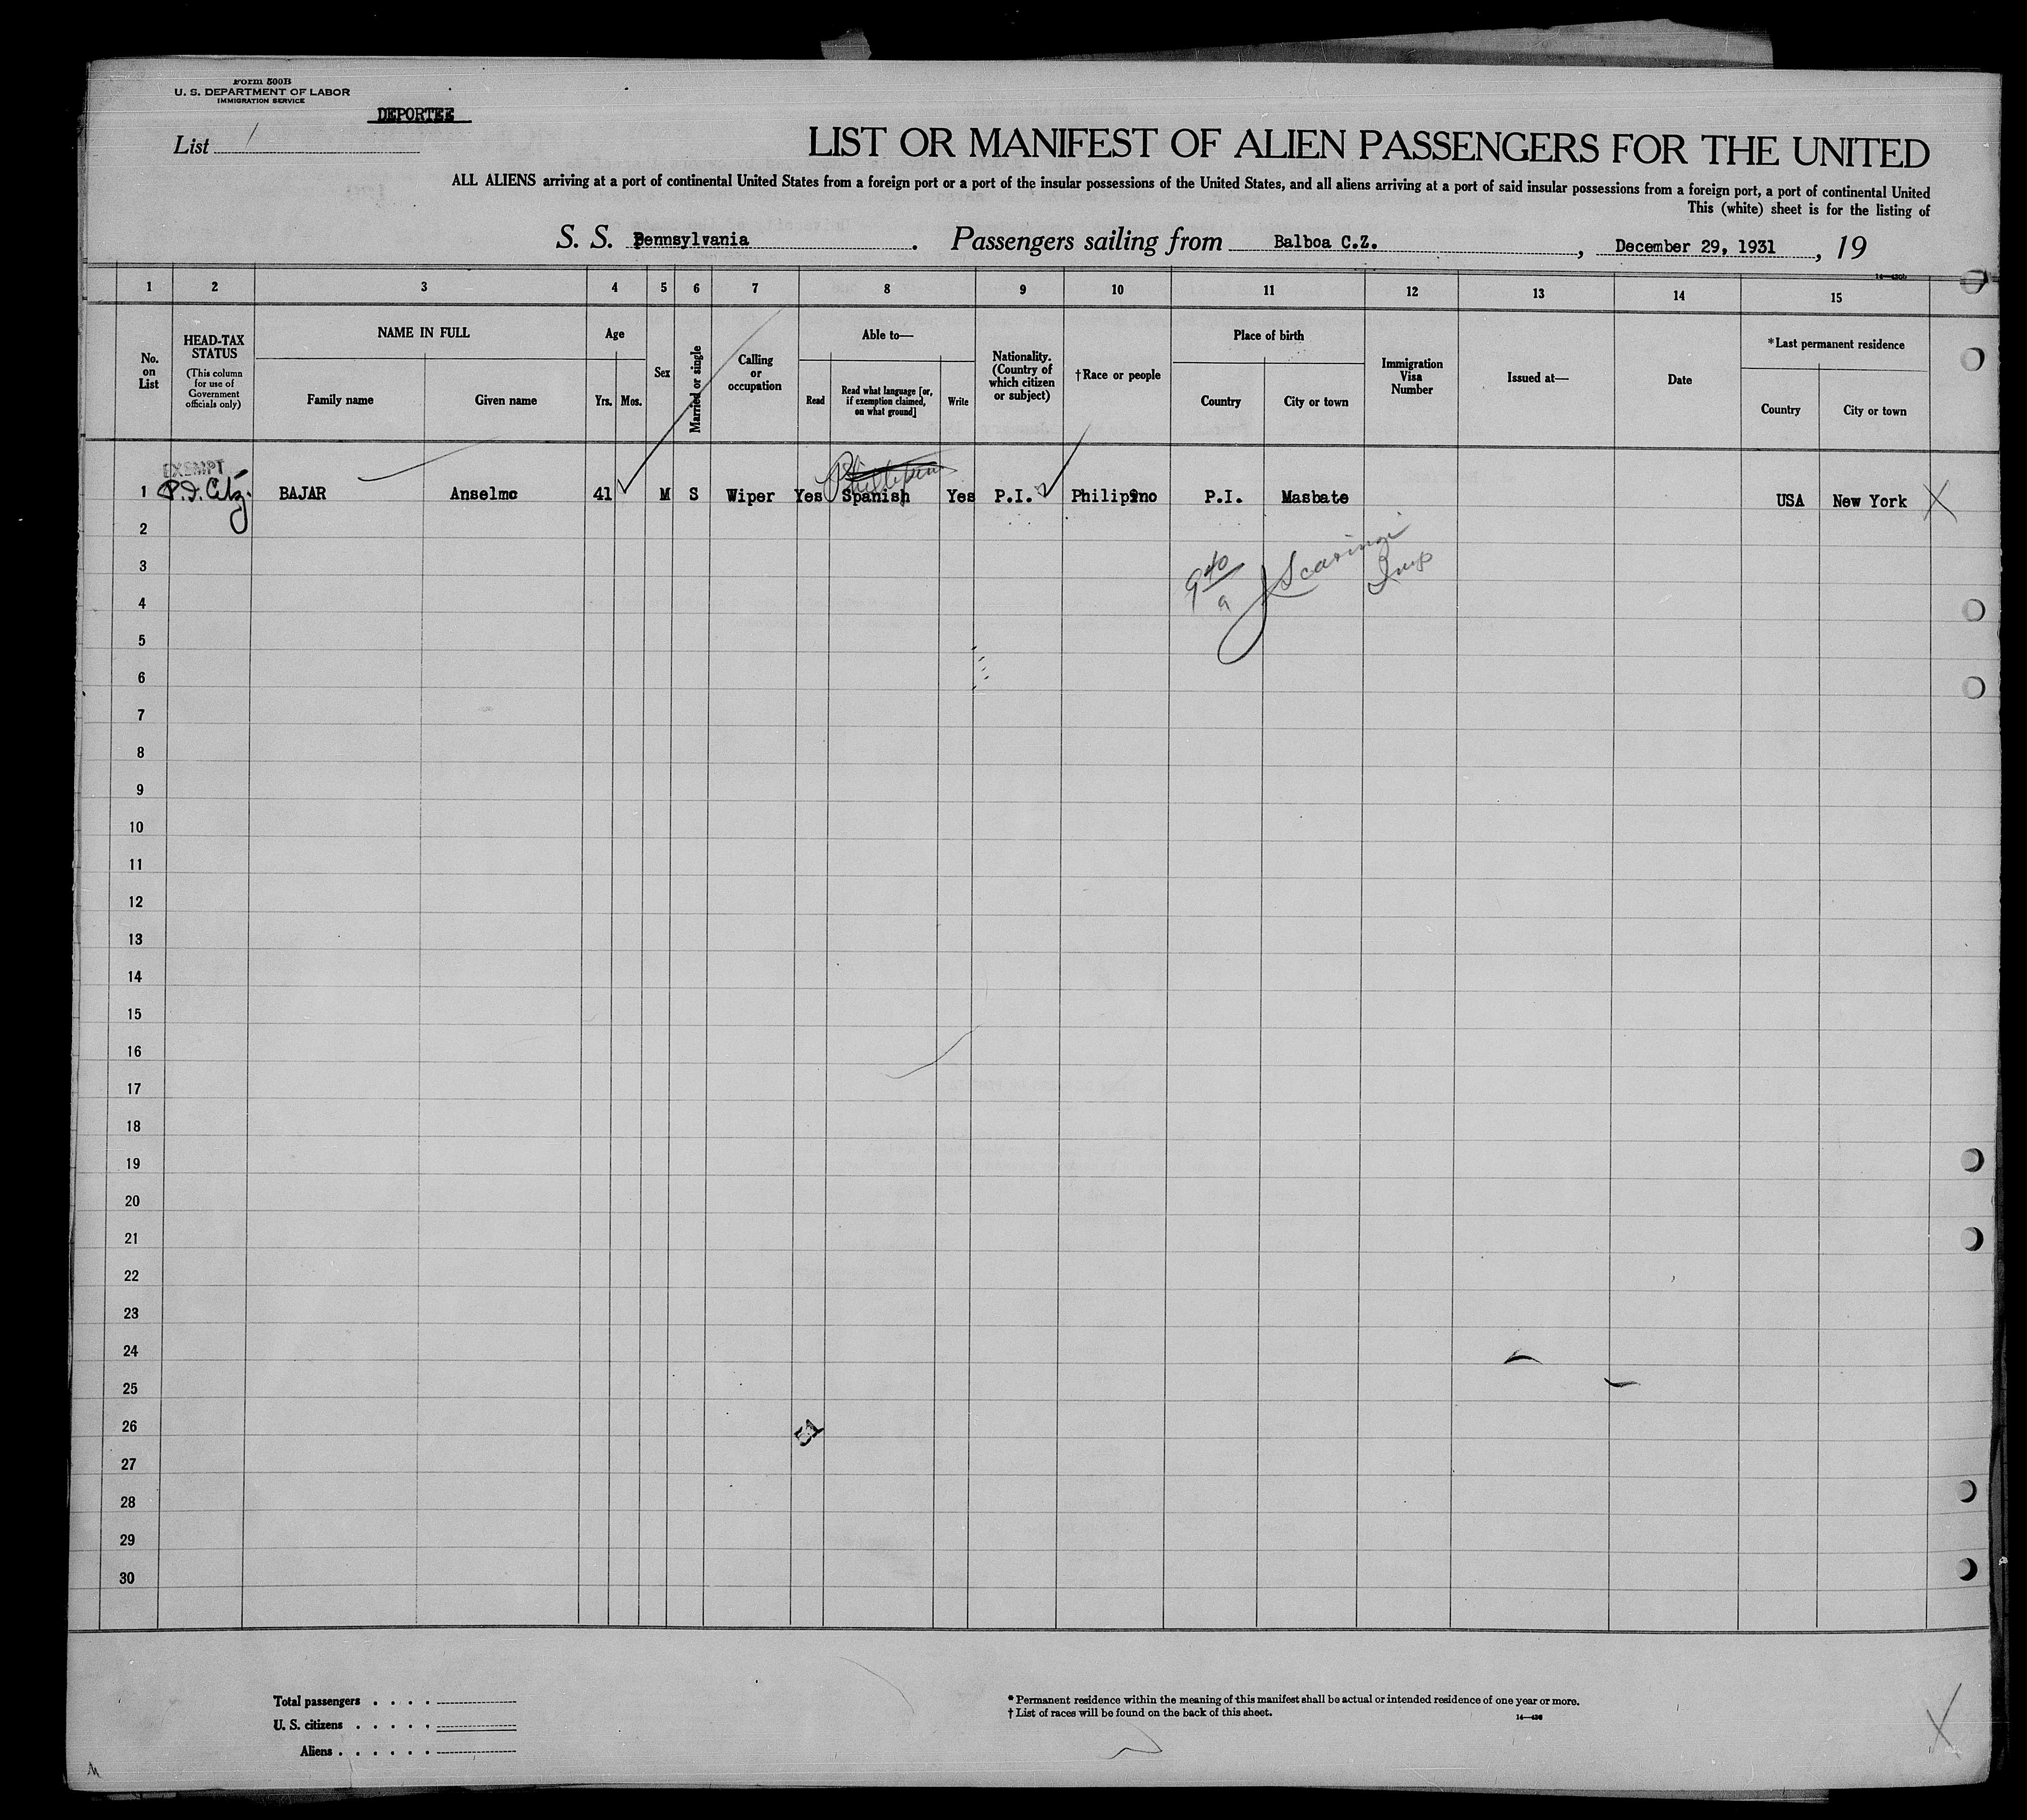 Form 500B
U. S. DEPARTMENT OF LABOR
IMMIGRATION SERVICE
DEPORTEE
List 1
LIST OR MANIFEST OF ALIEN PASSENGERS FOR THE UNITED
ALL ALIENS arriving at a port of continental United States from a foreign port or a port of the insular possessions of the United States, and all aliens arriving at a port of said insular possessions from a foreign port, a port of continental United
This (white) sheet is for the listing of
S. S. Pennsylvania . Passengers sailing from Balboa C.Z. , December 29, 1931 , 19
1 2 3 4 5 6 7 8 9 10 11 12 13 14 15
No. on List
HEAD-TAX STATUS (This column for use of Government officials only)
NAME IN FULL
Family name Given name
Age
Yrs. Mos.
Sex
Married or single
Calling or occupation
Able to—
Read
Read what language [or, if exemption claimed, on what ground]
Write
Nationality. (Country of which citizen or subject)
†Race or people
Place of birth
Country City or town
Immigration Visa Number
Issued at—
Date
*Last permanent residence
Country City or town
EXEMPT
1 P.I. Citz. BAJAR Anselmo 41 M S Wiper Yes Spanish Yes P.I. Philipino P.I. Masbate USA New York X
2
3
940 a J Scaringi Insp
4
5
6
7
8
9
10
11
12
13
14
15
16
17
18
19
20
21
22
23
24
25
26
27
28
29
30
Total passengers . . . .
U. S. citizens . . . . .
Aliens . . . . . .
* Permanent residence within the meaning of this manifest shall be actual or intended residence of one year or more.
† List of races will be found on the back of this sheet.
X